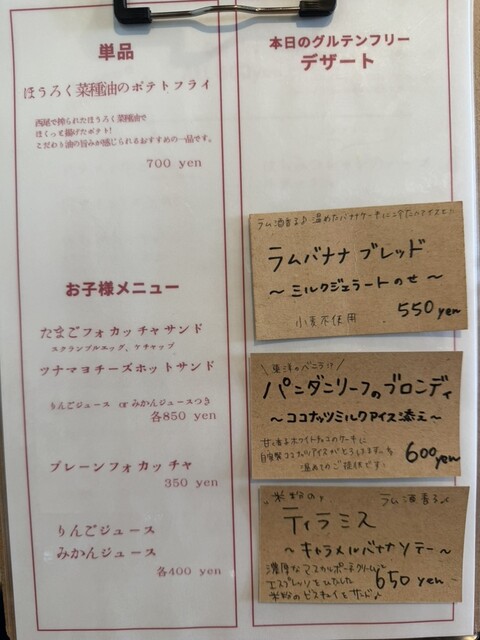 単品
ほうろく菜種油のポテトフライ
西尾で搾られたほうろく菜種油で
ほくっと揚げたポテト!
こだわり油の旨みが感じられるおすすめの一品です。
700 yen
お子様メニュー
たまごフォカッチャサンド
スクランブルエッグ、ケチャップ
ツナマヨチーズホットサンド
りんごジュース or みかんジュースつき
各850 yen
プレーンフォカッチャ
350 yen
りんごジュース
みかんジュース
各400 yen
本日のグルテンフリー
デザート
ラム酒香る♪ 温めたバナナケーキに冷たいアイスを!!
ラムバナナブレッド
〜ミルクジェラートのせ〜
550yen
小麦不使用
\ 東洋のバニラ!? /
パンダンリーフのブロンディ
〜ココナッツミルクアイス添え〜
甘く香るホワイトチョコのケーキに
自家製ココナッツアイスがとろけます。
温めてのご提供です!
600yen
米粉の
ラム酒香る♪
ティラミス
〜キャラメルバナナソテー〜
濃厚なマスカルポーネクリーム
エスプレッソをひたした
米粉のビスキュイをサンド♪
650yen